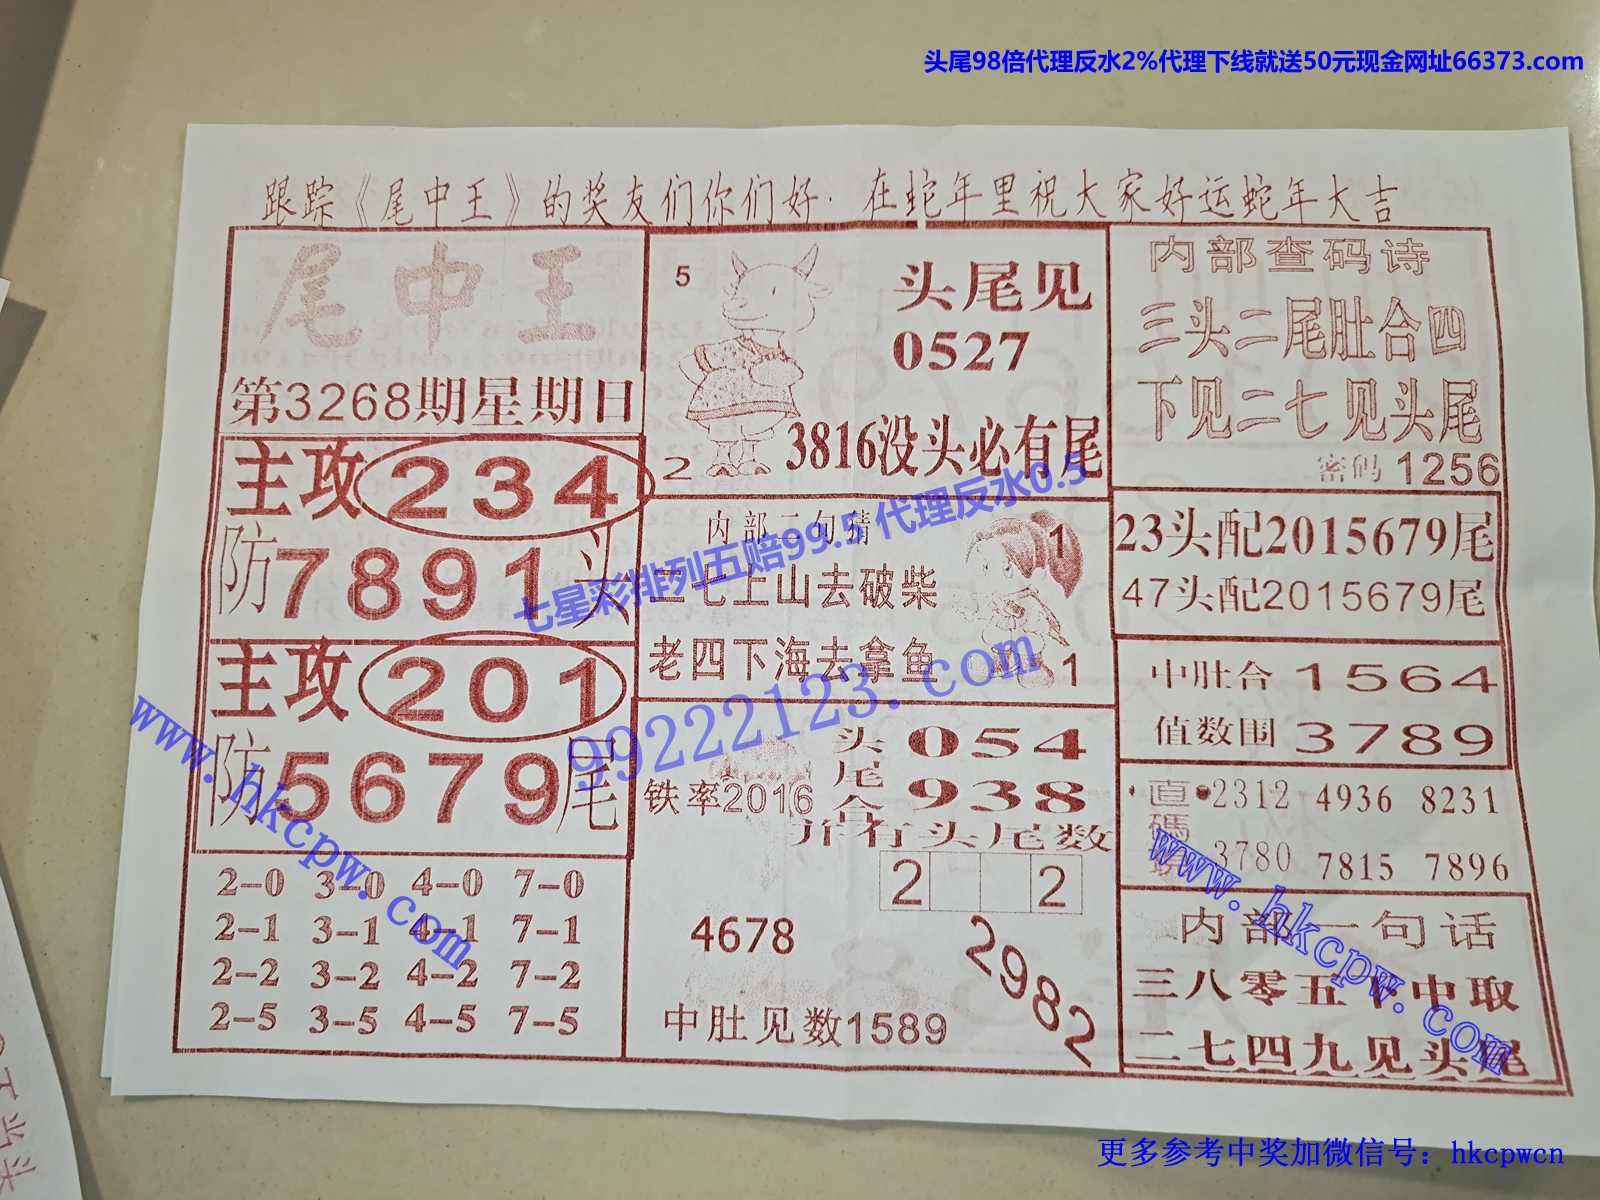 头尾98倍代理反水2%代理下线就送50元现金网址66373.com
跟踪《尾中王》的奖友们你们好. 在蛇年里祝大家好运蛇年大吉
尾中王
第3268期星期日
主攻234
防7891头
主攻201
防5679尾
2-0 3-0 4-0 7-0
2-1 3-1 4-1 7-1
2-2 3-2 4-2 7-2
2-5 3-5 4-5 7-5
5
头尾见
0527
3816没头必有尾
2
内部二句猜
二七上山去破柴
老四下海去拿鱼
1
1
头 054
尾
合 938
铁率2016
并有头尾数
2 2
4678
2982
中肚见数1589
内部查码诗
三头二尾肚合四
下见二七见头尾
密码 1256
23头配2015679尾
47头配2015679尾
中肚合 1564
值数围 3789
直碼
2312 4936 8231
3780 7815 7896
内部一句话
三八零五下中取
二七四九见头尾
七星彩排列五赔99.5 代理反水0.5
99222123.com
www.hkcpw.com
www.hkcpw.com
更多参考中奖加微信号：hkcpwcn